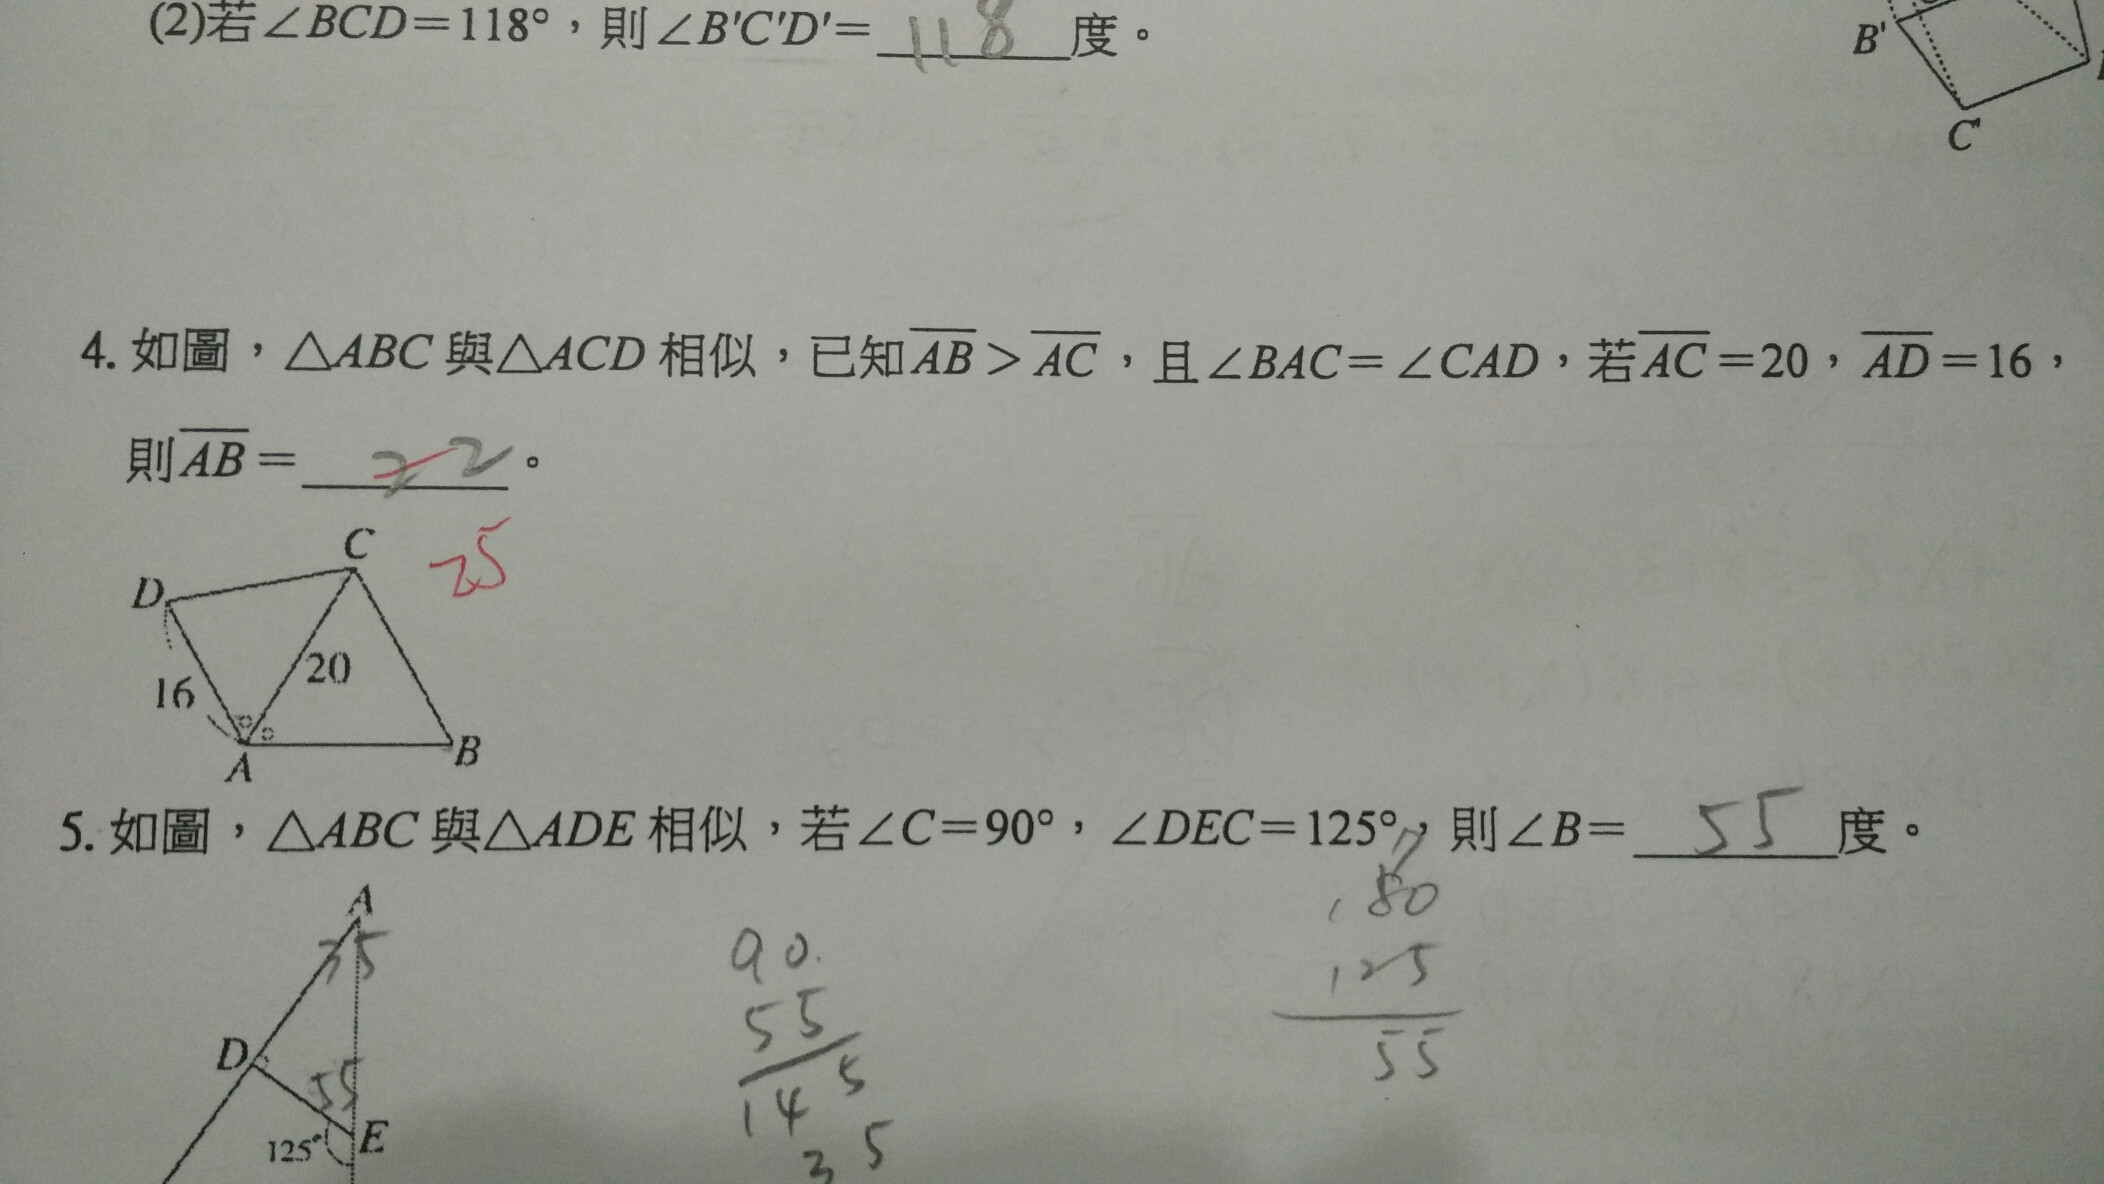 (2)若∠BCD=118°，則∠B'C'D'=118度。
B'
C'
4. 如圖，△ABC 與△ACD 相似，已知AB>AC，且∠BAC=∠CAD，若AC=20，AD=16，
則AB=22。
25
C
D
20
16
A
B
5. 如圖，△ABC 與△ADE 相似，若∠C=90°，∠DEC=125°，則∠B=55度。
A
35
D
55
125°
E
90
55
145
35
180
125
55